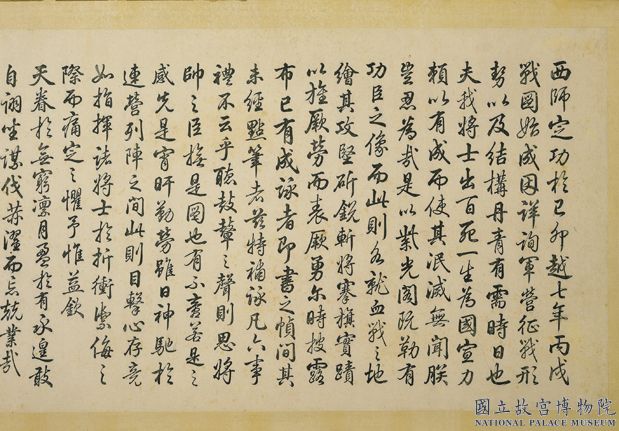 西師定功於己卯越七年丙戌
戰圖始成因詳詢軍營征戰形
勢以及結構丹青有需時日也
夫我將士出百死一生為國宣力
賴以有成而使其泯滅無聞朕
豈忍為哉是以紫光閣既勒有
功臣之像而此則各就血戰之地
繪其攻堅斫銳斬將搴旗實蹟
以旌厥勞而表厥勇爾時披露
布已有成詠者即書之幀間其
未經點筆者茲特補詠凡六事
禮不云乎聽鼓鼙之聲則思將
帥之臣披是圖也有不啻若是之
感先是宵旰勤勞雖日神馳於
連營列陣之間此則目擊心存竟
如指揮諸將士於折衝禦侮之
際而痛定之懼予惟益欽
天眷於無窮凜月盈於有永遑敢
自詡坐謀伐莽濯而忘兢業哉
國立故宮博物院
NATIONAL PALACE MUSEUM